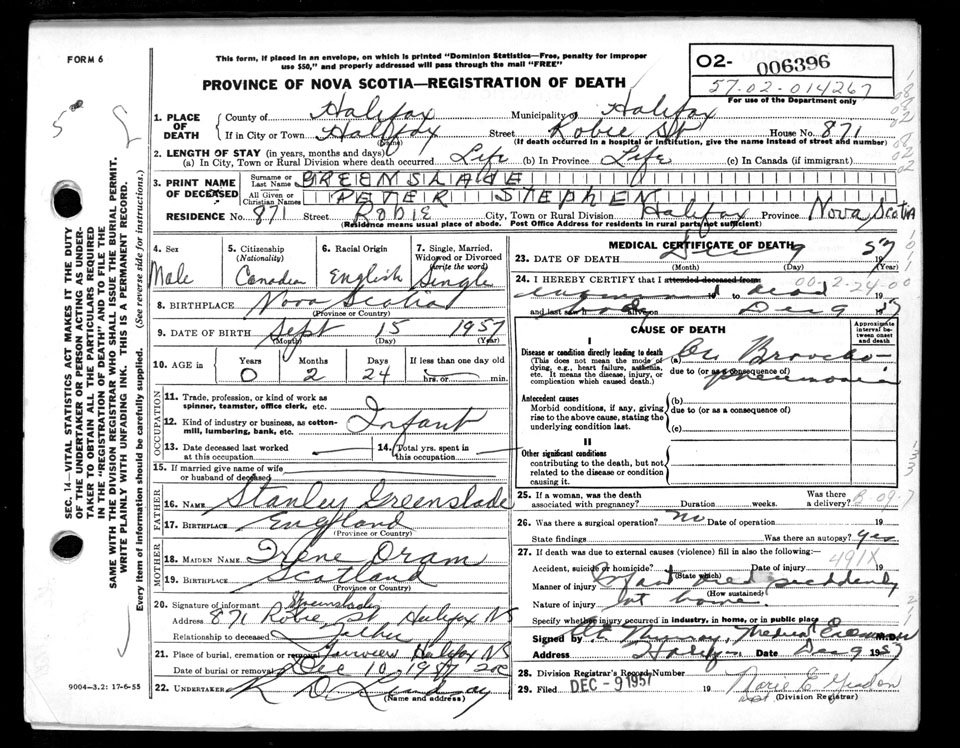 FORM 6
This form, if placed in an envelope, on which is printed "Dominion Statistics—Free, penalty for improper
use $50," and properly addressed will pass through the mail "FREE"
PROVINCE OF NOVA SCOTIA—REGISTRATION OF DEATH
O2- 006396
57-02-014267
For use of the Department only
SEC. 14—VITAL STATISTICS ACT MAKES IT THE DUTY
OF THE UNDERTAKER OR PERSON ACTING AS UNDER-
TAKER TO OBTAIN ALL THE PARTICULARS REQUIRED
IN THE "REGISTRATION OF DEATH" AND TO FILE THE
SAME WITH THE DIVISION REGISTRAR WHO SHALL ISSUE THE BURIAL PERMIT.
WRITE PLAINLY WITH UNFADING INK. THIS IS A PERMANENT RECORD.
Every item of information should be carefully supplied. (See reverse side for instructions.)
1. PLACE OF DEATH
County of Halifax Municipality of Halifax
If in City or Town Halifax Street Robie St House No. 871
(Name) (If death occurred in a hospital or institution, give the name instead of street and number)
2. LENGTH OF STAY (in years, months and days)
(a) In City, Town or Rural Division where death occurred Life (b) In Province Life (c) In Canada (if immigrant)
3. PRINT NAME OF DECEASED
Surname or Last Name GREENSLADE
All Given or Christian Names PETER STEPHEN
RESIDENCE No. 871 Street ROBIE City, Town or Rural Division Halifax Province Nova Scotia
(Residence means usual place of abode. Post Office Address for residents in rural parts not sufficient)
4. Sex Male
5. Citizenship (Nationality) Canadian
6. Racial Origin English
7. Single, Married, Widowed or Divorced (write the word) Single
8. BIRTHPLACE Nova Scotia
(Province or Country)
9. DATE OF BIRTH Sept 15 1957
(Month) (Day) (Year)
10. AGE in Years 0 Months 2 Days 24 If less than one day old hrs. or min.
OCCUPATION
11. Trade, profession, or kind of work as spinner, teamster, office clerk, etc.
12. Kind of industry or business, as cotton-mill, lumbering, bank, etc. Infant
13. Date deceased last worked at this occupation
14. Total yrs. spent in this occupation
15. If married give name of wife or husband of deceased
FATHER
16. NAME Stanley Greenslade
17. BIRTHPLACE England
(Province or Country)
MOTHER
18. MAIDEN NAME Irene Oram
19. BIRTHPLACE Scotland
(Province or Country)
20. Signature of informant Greenslade
Address 871 Robie St Halifax NS
Relationship to deceased Father
21. Place of burial, cremation or removal Fairview Halifax NS
Date of burial or removal Dec 10 1957
22. UNDERTAKER R D Lindsay
(Name and address)
9004—3.2: 17-6-55
MEDICAL CERTIFICATE OF DEATH
23. DATE OF DEATH Dec 9 57
(Month) (Day) (Year)
24. I HEREBY CERTIFY that I attended deceased from
00-2-24-00
19 to dead 19
and last saw h alive on Dec 9 1957
CAUSE OF DEATH
Approximate interval between onset and death
I
Disease or condition directly leading to death
(This does not mean the mode of dying, e.g., heart failure, asthenia, etc. It means the disease, injury, or complication which caused death.)
(a) Broncho-
due to (or as a consequence of) pneumonia
Antecedent causes
Morbid conditions, if any, giving rise to the above cause, stating the underlying condition last.
(b)
due to (or as a consequence of)
(c)
II
Other significant conditions
contributing to the death, but not related to the disease or condition causing it.
25. If a woman, was the death associated with pregnancy? Duration weeks. Was there a delivery?
26. Was there a surgical operation? no Date of operation 19
State findings Was there an autopsy? yes
27. If death was due to external causes (violence) fill in also the following:—
491X
Accident, suicide or homicide? Date of injury 19
(State which)
Manner of injury Infant died suddenly
(How sustained)
Nature of injury at home.
Specify whether injury occurred in industry, in home, or in public place
Signed by Murray, Medical Examiner M.D.
Address Halifax Date Dec 9 1957
28. Division Registrar's Record Number
29. Filed DEC - 9 1957 19
(Division Registrar)